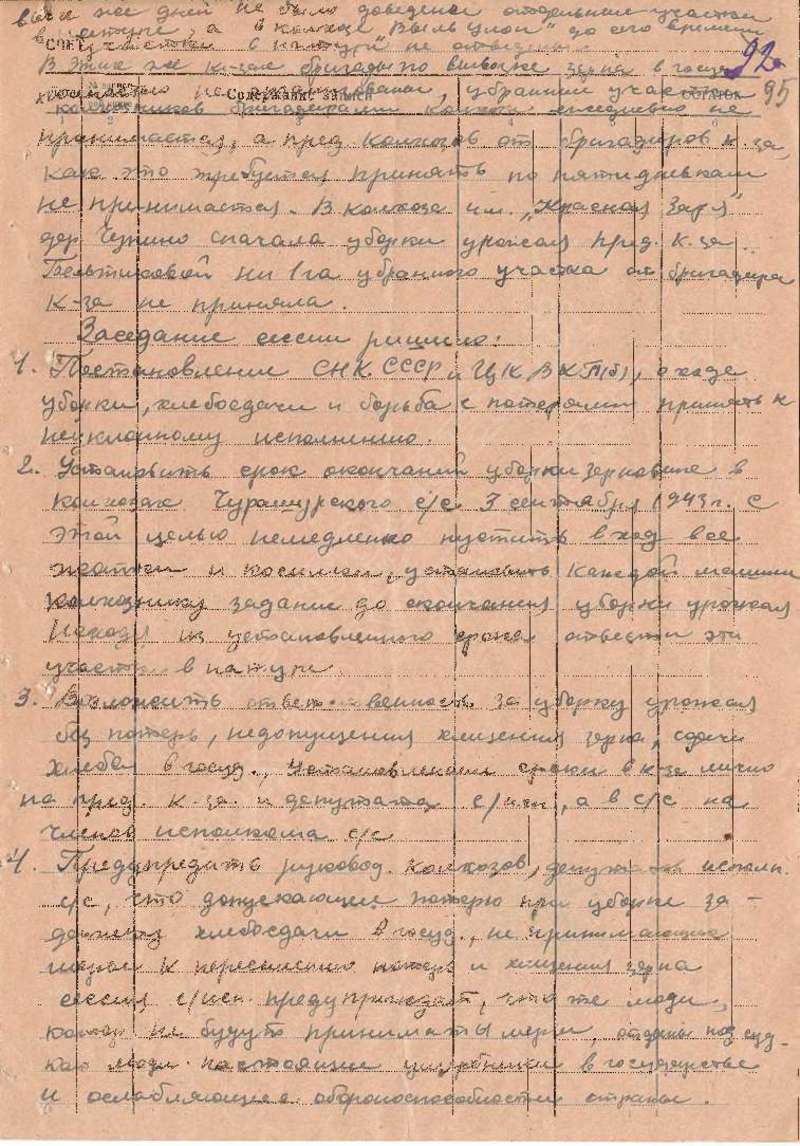 же дней не было доведено отдельные участки
в натуре, а в колхозе "Выль улон" до сего времени
участки в натуре не отведены.
В этих же к-зах бригады по вывозке зерна в госуд.
92
95
Содержание записи
остаток
не организованы, убранные участки
колхозников бригадирами колхоза ежедневно не
принимается, а пред колхозов от бригадиров к-за,
как это требуется принять по пятидневкам
не принимается. В колхозе им. "Красная Заря"
дер. Чужино сначала уборки урожая пред. к-за
ни 1га убранного участка от бригадира
к-за не приняла.
Заседание сессии решило:
1. Постановление СНК СССР и ЦК ВКП(б), о ходе
уборки, хлебосдачи и борьба с потерями принять к
неуклонному исполнению.
2. Установить срок окончаний уборки зерновые в
колхозах Чурашурского с/с 3 сентября 1943г. С
этой целью немедленно пустить в ход все
жатки и косилки, установить каждой машине
колхознику задание до окончания уборки урожая
Исходя из установленного срока отвести эти
участки в натуре.
3. Возложить ответственность за уборку урожая
без потерь, недопущения хищения зерна, сдачи
хлеба в госуд., установленные сроки в к-зе лично
на пред. к-за. и депутатов с/, а в с/с на
членов исполкома с/с
4. Предупредить руковод. колхозов, депутатов исполк.
с/с, что допускающие потерю при уборке за-
держку хлебосдачи в госуд., не принимающие
меры к пересечению потерь и хищения зерна
сессия с/исп. предупреждает, что те люди,
которые не будут принимать меры, отданы под суд
как люди настоящие в государстве
и ослабляющие обороноспособности страны.